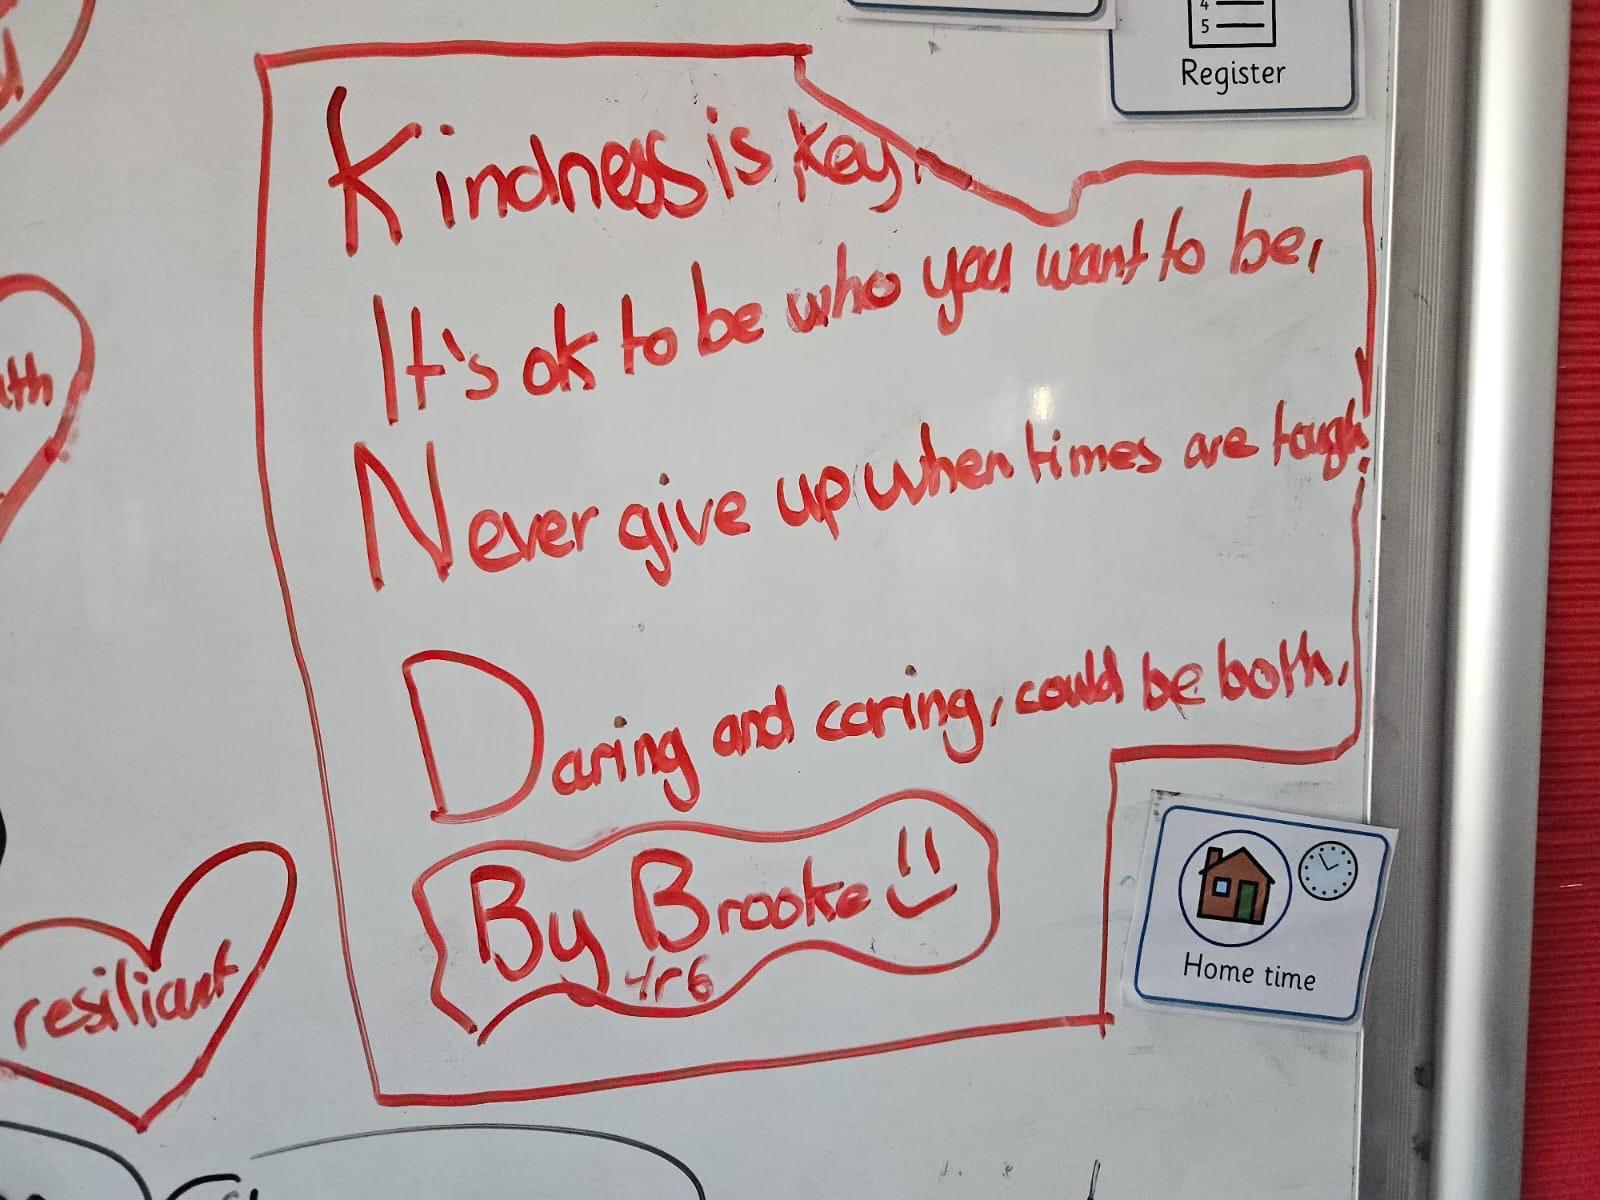 4
5
Register
Kindness is key.
It's ok to be who you want to be,
Never give up when times are tough!
Daring and caring, could be both.
By Brooke
Yr6
resiliant
Home time